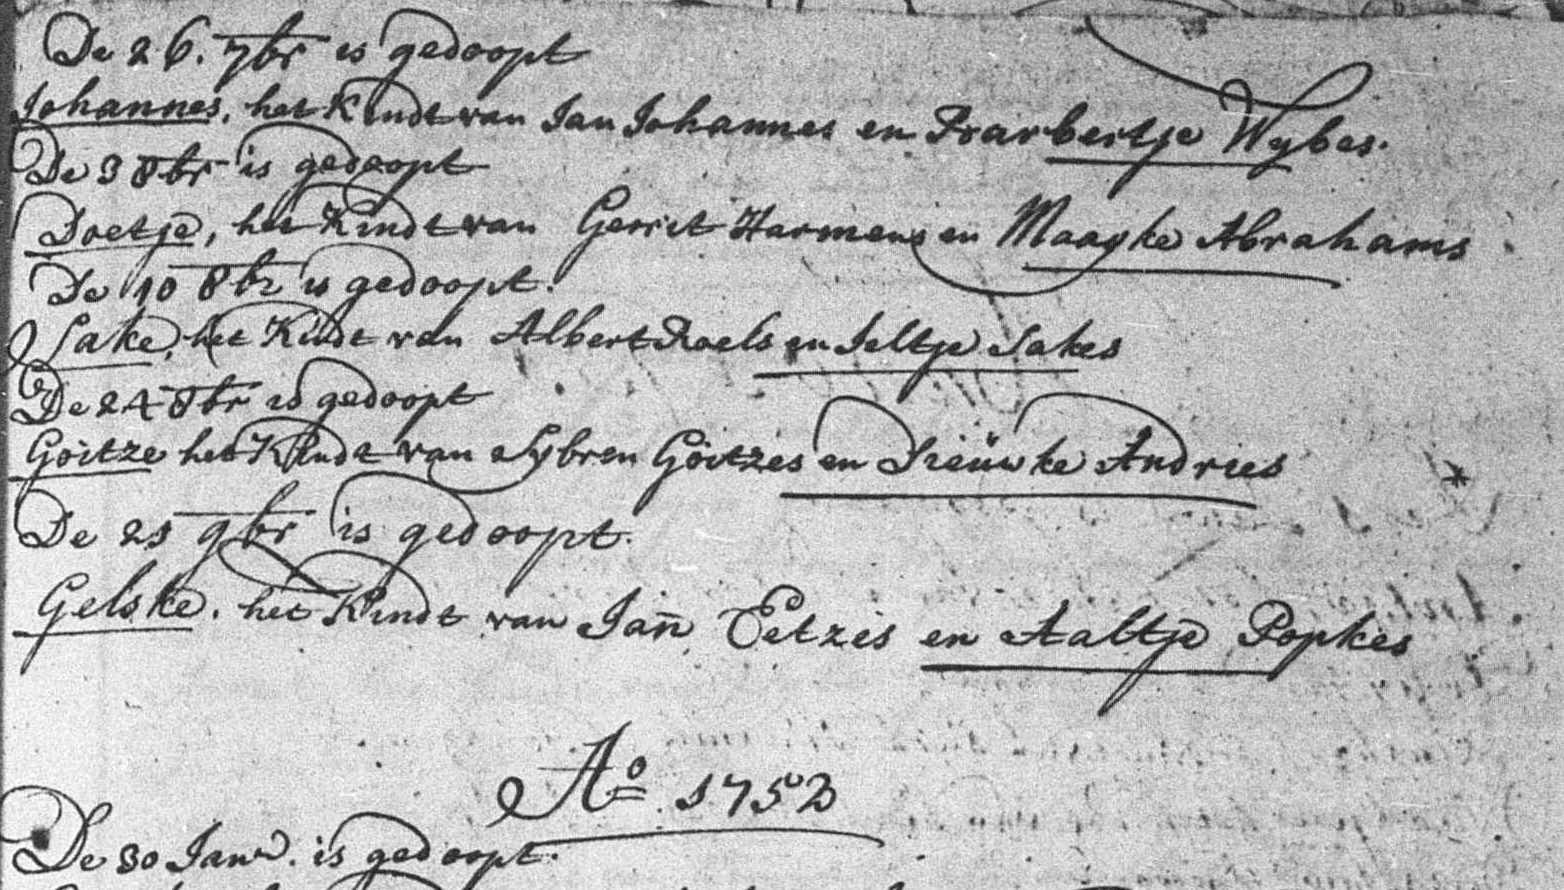 De 26. 7br is gedoopt
Johannes, het Kindt van Jan Johannes en Brarbertje Wybes.
De 3 8br is gedoopt
Doetje, het Kindt van Gerrit Harmens en Maayke Abrahams
De 10 8br is gedoopt.
Sake, het Kindt van Albert Roels en Jeltje Sakes
De 24 8br is gedoopt
Goitze het Kindt van Sybren Goitzes en Sieuwke Andries
De 21 9br is gedoopt.
Gelske. het Kindt van Jan̄ Eetzes en Aaltje Popkes
Ao 1752
De 30 Janr. is gedoopt.